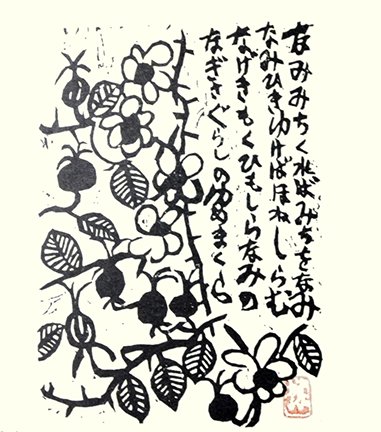 なみみちくればみちをなみ
なみひきゆけばほねしらむ
なげきもくひもしらなみの
なぎさぐらしのゆめまくら